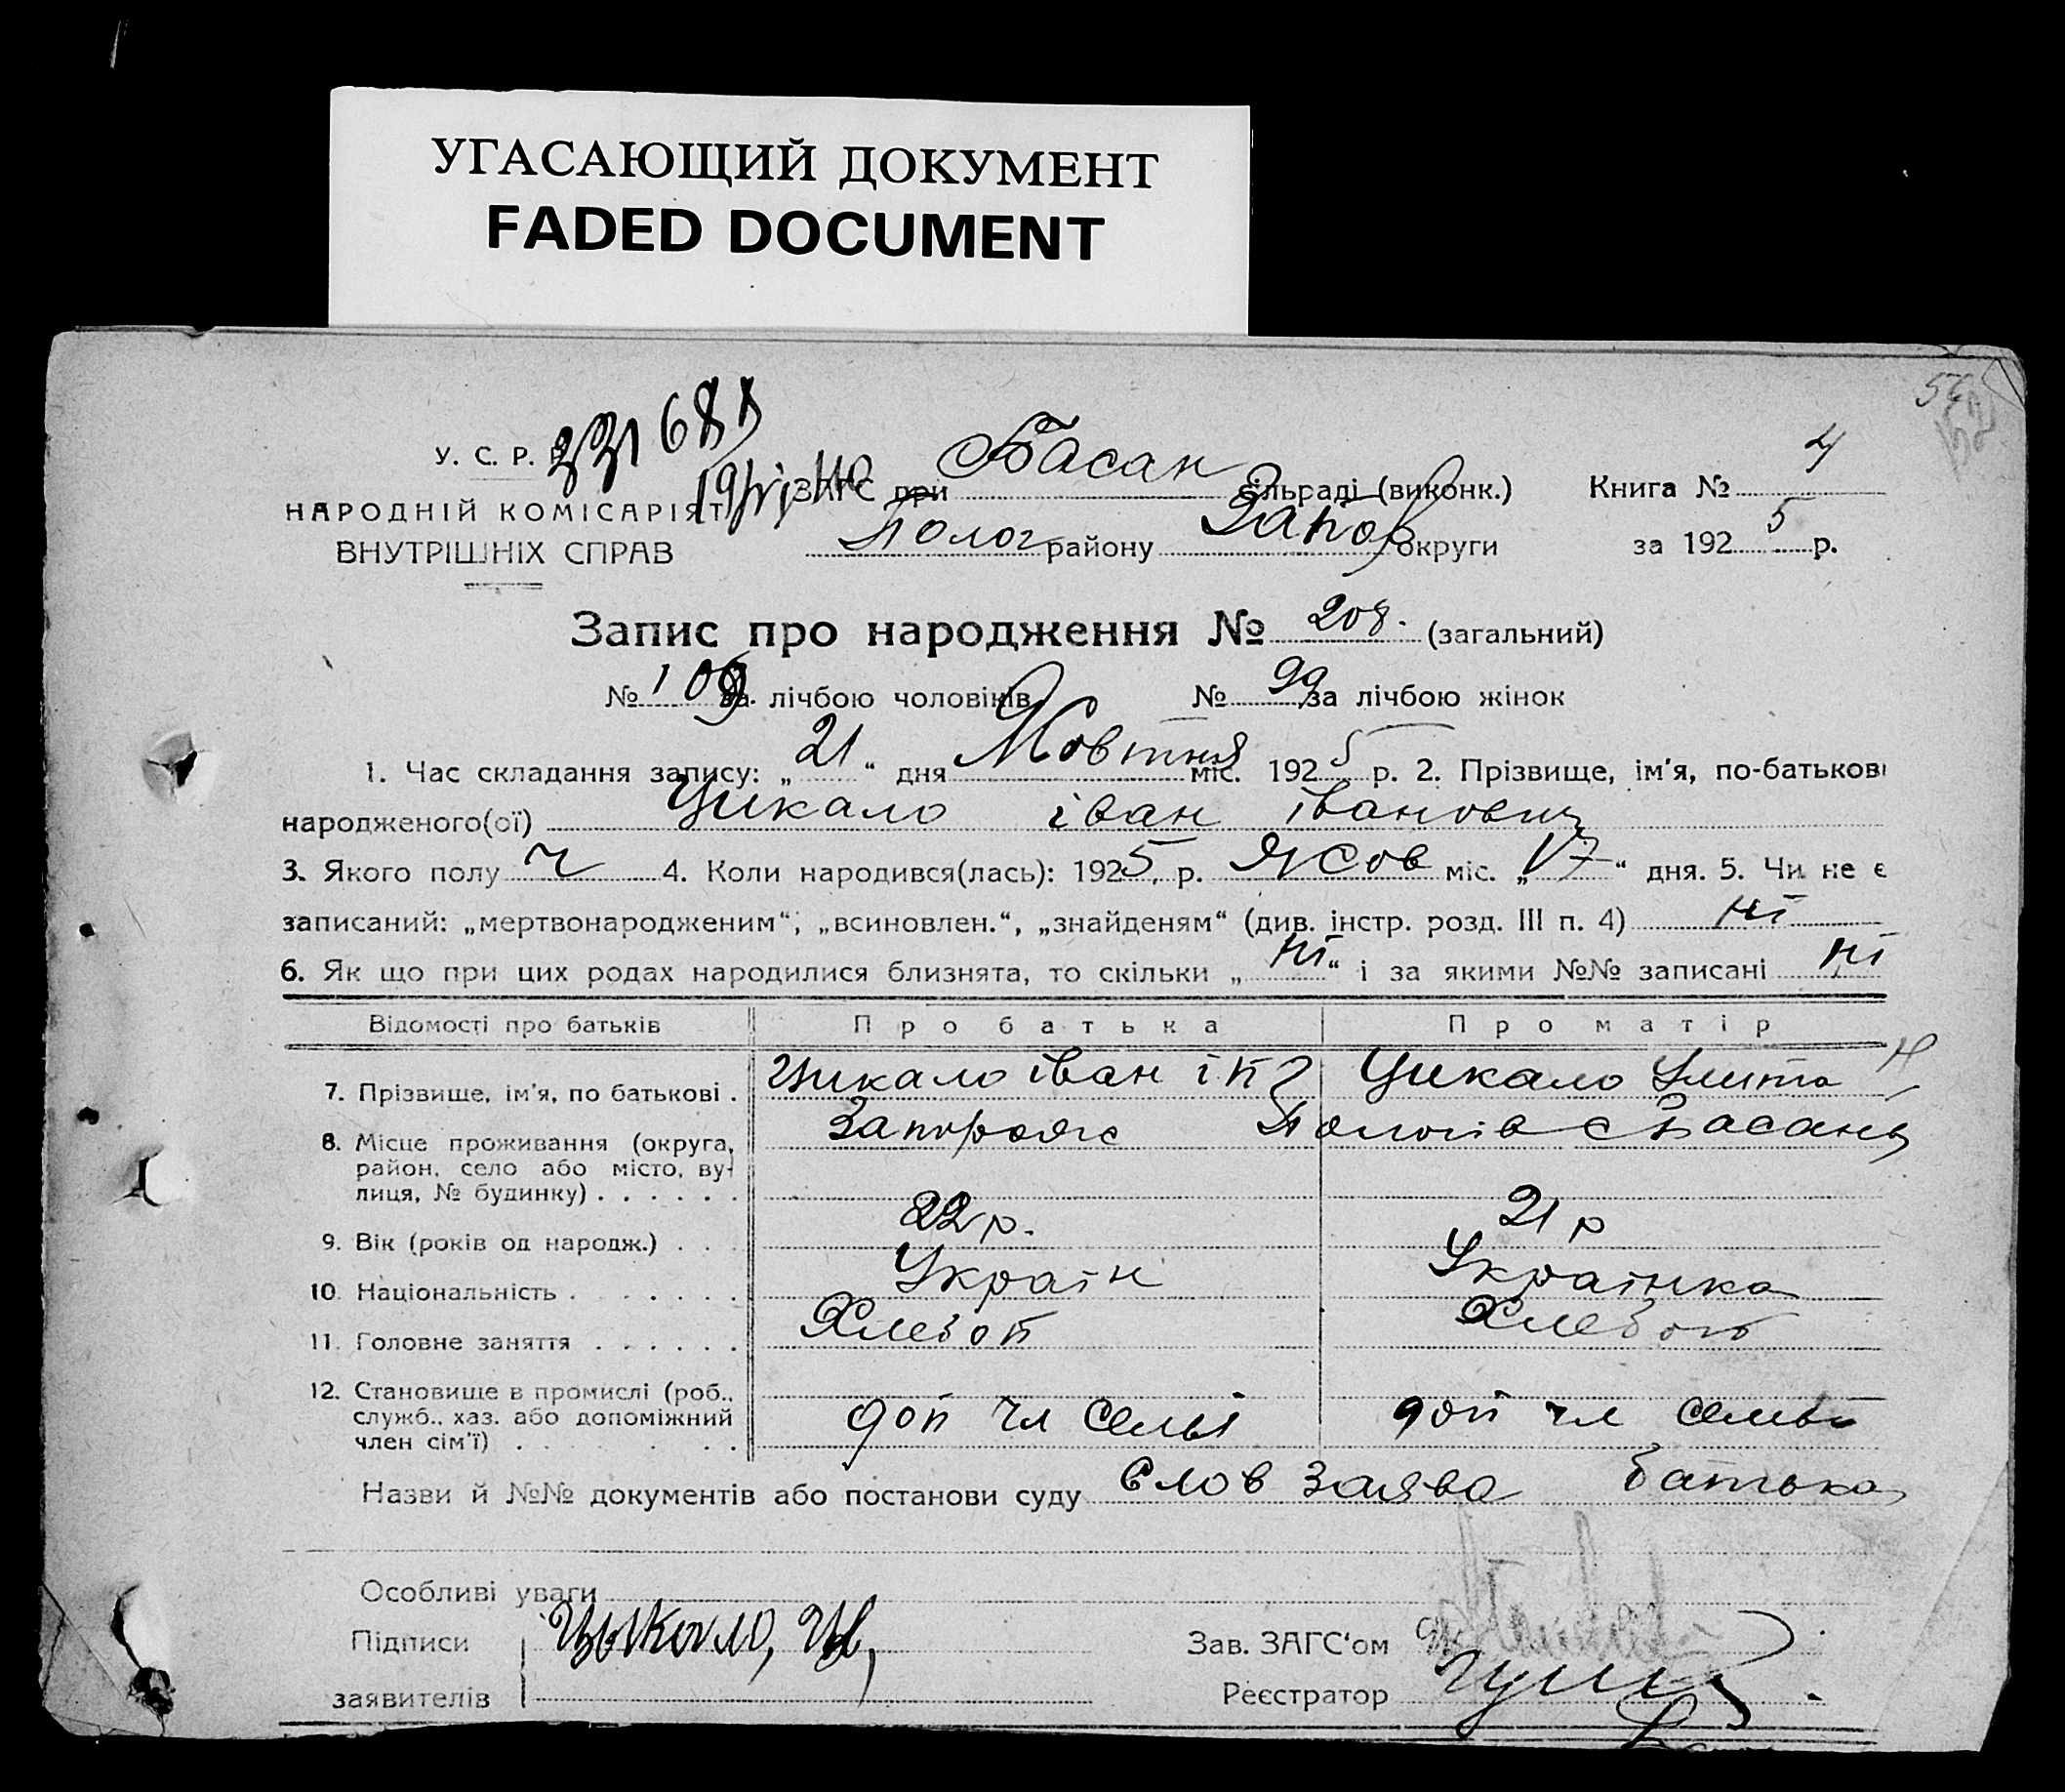 УГАСАЮЩИЙ ДОКУМЕНТ
FADED DOCUMENT
У. С. Р. Р.
НАРОДНІЙ КОМІСАРІЯТ
ВНУТРІШНІХ СПРАВ
ЗАГС при Басан сільраді (виконк.)
Полог району Запор округи
Книга № 4
за 1925 р.
Запис про народження № 208. (загальний)
№ 109. за лічбою чоловіків № 99 за лічбою жінок
1. Час складання запису: „21“ дня Жовтня міс. 1925 р. 2. Прізвище, ім'я, по-батькові
народженого(ої) Цикало іван іванович
3. Якого полу ч 4. Коли народився(лась): 1925 р. Жов міс. „17“ дня. 5. Чи не є
записаний: „мертвонародженим“, „всиновлен.“, „знайденям“ (див. інстр. розд. III п. 4) ні
6. Як що при цих родах народилися близнята, то скільки „ні“ і за якими №№ записані ні
Відомості про батьків Про батька Про матір
7. Прізвище, ім'я, по батькові . Цикало іван Цикало Улита
8. Місце проживання (округа, район, село або місто, вулиця, № будинку) . . . . . . Запорожс Пологів с Басань
9. Вік (років од народж.) . . . 22 р. 21 р
10. Національність . . . . . . . Україн Українка
11. Головне заняття . . . . . . Хлебоп Хлебоп
12. Становище в промислі (роб., служб., хаз. або допоміжний член сім'ї) . . . . . доп чл семьі доп чл семьи
Назви й №№ документів або постанови суду Слов заява батька
Особливі уваги
Підписи
заявителів
Цыкало, Ц,
Зав. ЗАГС'ом
Реєстратор